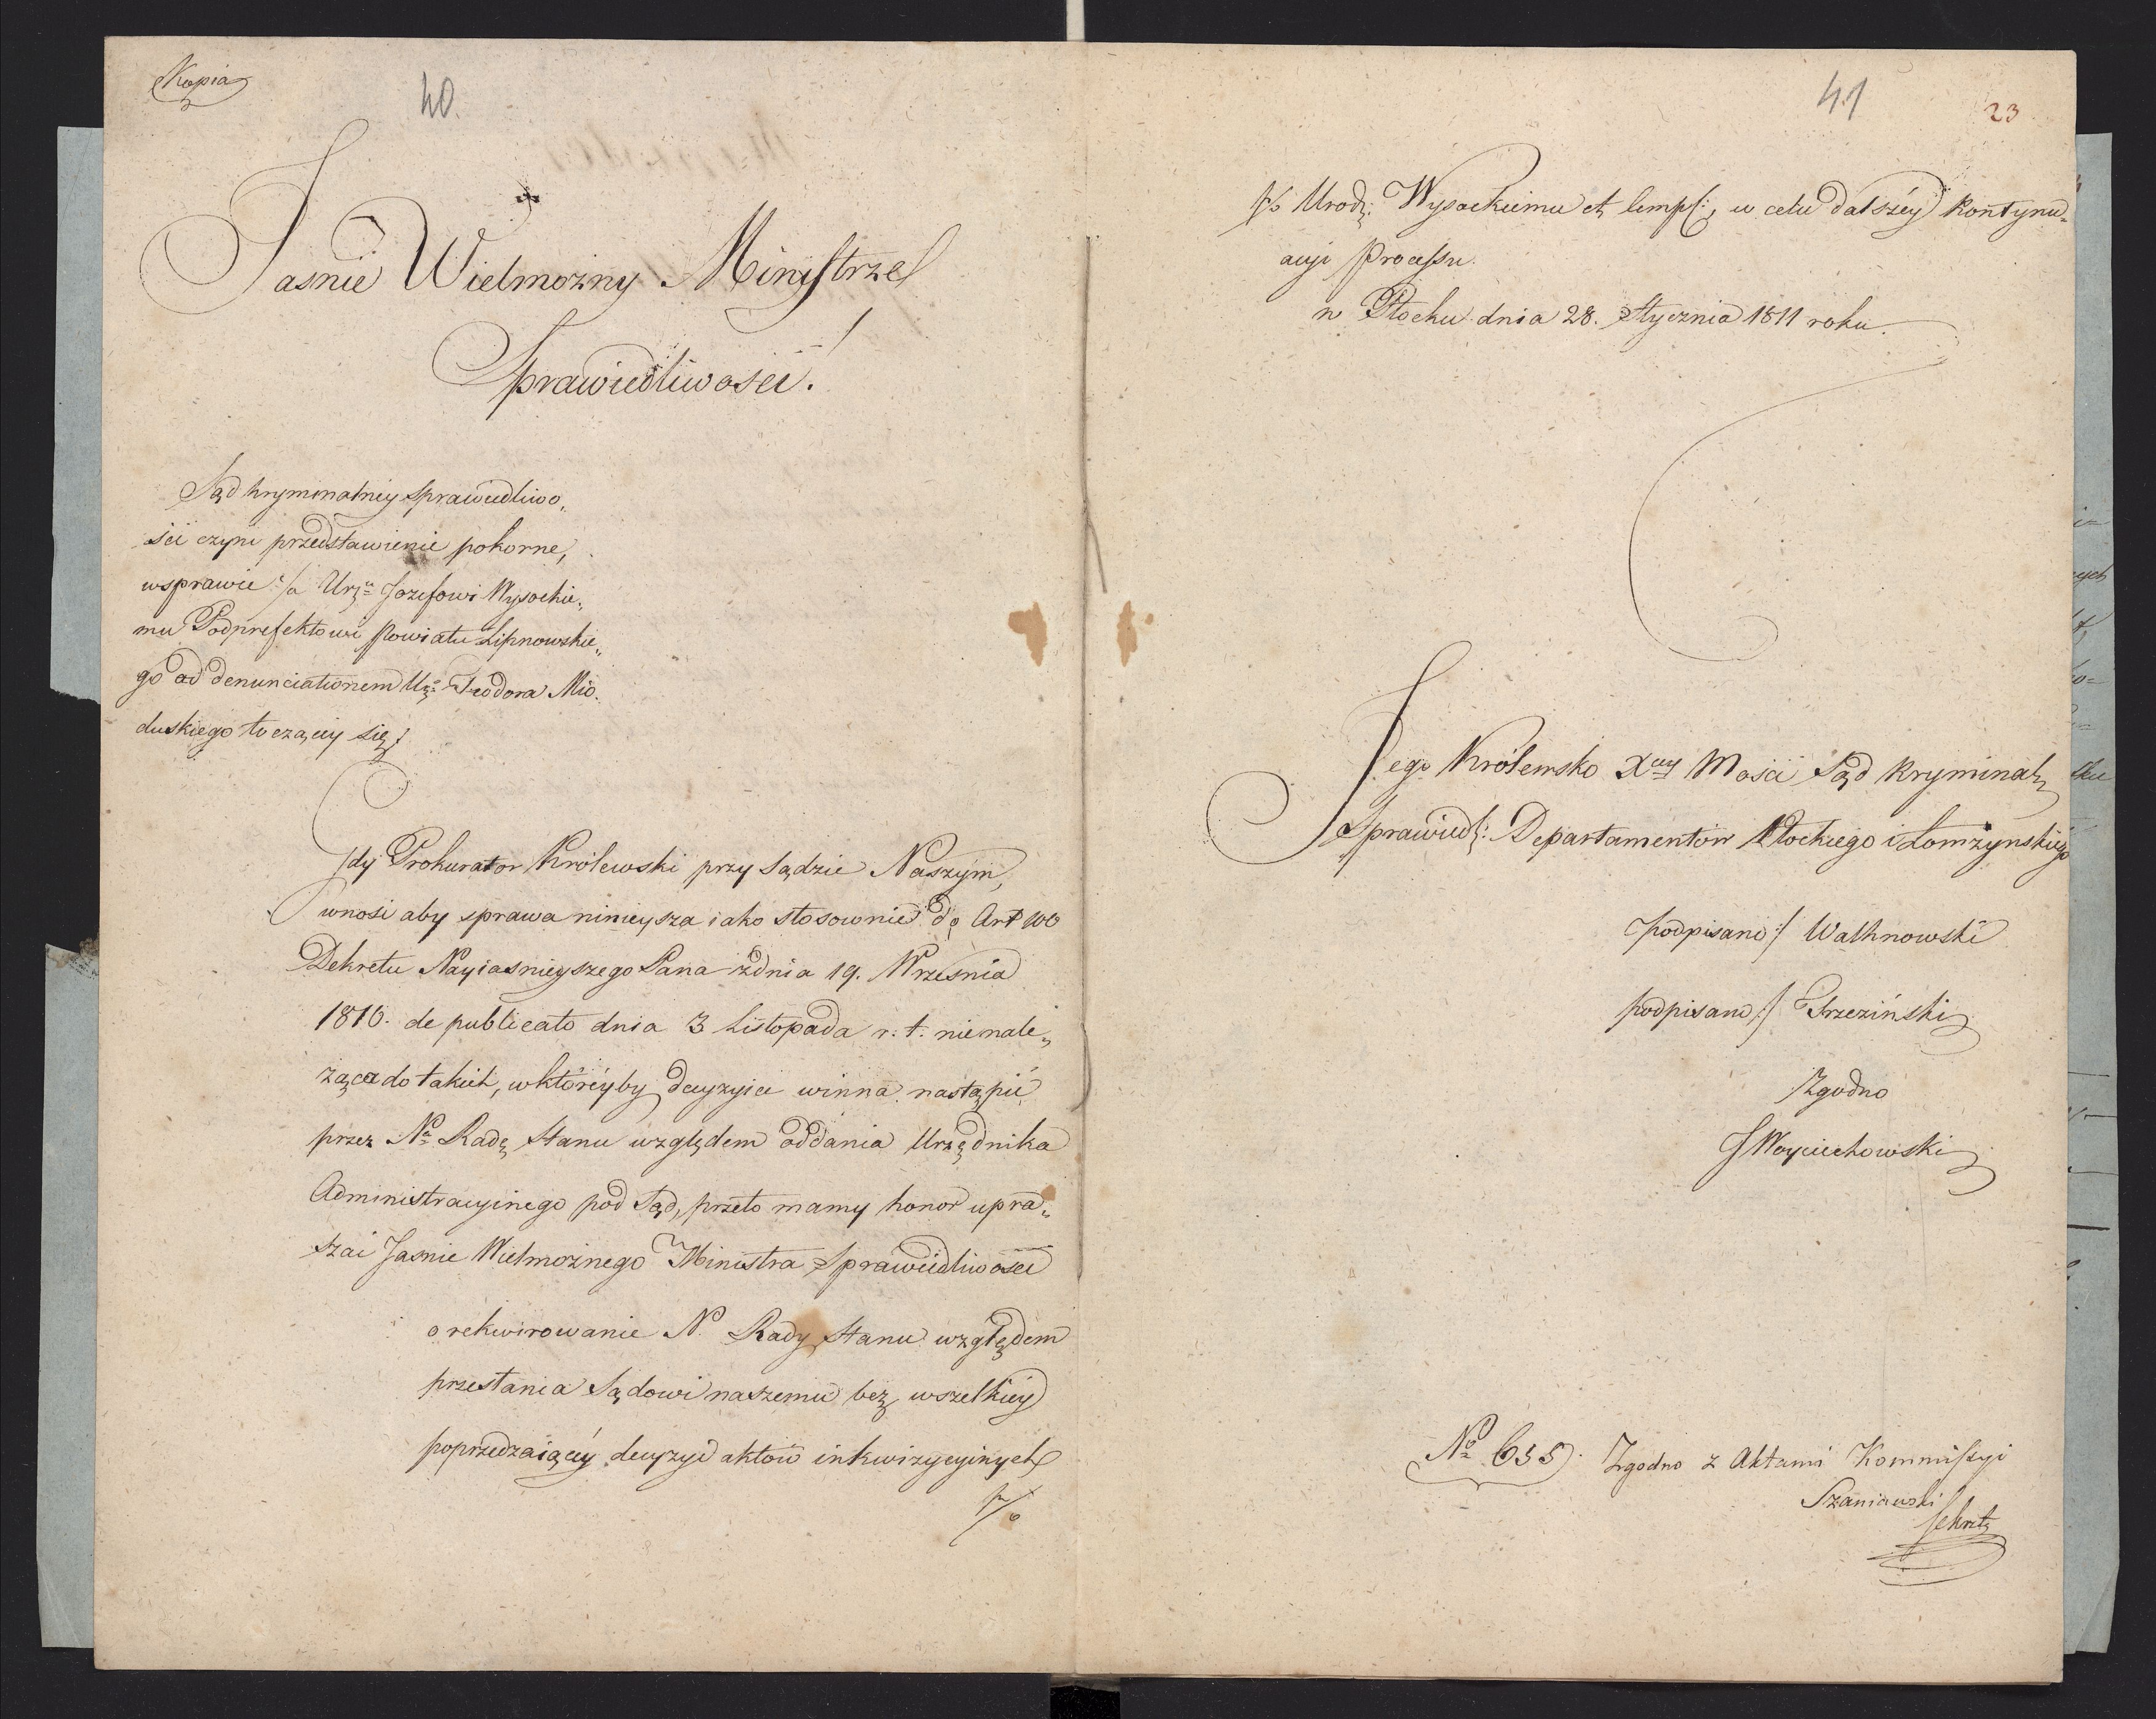 Kopia
40.
Jasnie Wielmożny Ministrze
Sprawiedliwości!
Sąd kryminalney Sprawiedliwo„
ści czyni przedstawienie pokorne,
wsprawie Jozefowi Wysockie„
mu Podprefektowi Powiatu Lipnowskie„
go ad denunciationem Teodora Mio„
duskiego toczącey się.
Gdy Prokurator Królewski przy Sądzie Naszym,
wnosi aby sprawa ninieysza iako stosownie do Art 100
Dekretu Nayiasnieyszego Pana zdnia 19. Września
1810. de publicato dnia 3 Listopada r. t. nienale„
żąca do takich, wktóréyby decyzyia winna nastąpić
przez Nã Radę Stanu względem oddania Urzędnika
Administracyinego pod Sąd, przeto mamy honor upra„
szać Jasnie Wielmożnego Ministra Sprawiedliwości
o rekwirowanie N. Rady Stanu względem
przesłania Sądowi naszemu bez wszelkiéy
poprzedzaiącéy decyzyi aktów inkwizycyinych
41
23
Urodz: Wysockiemu et, w celu dalszéy kontynu„
acyi Processu.
w Płocku dnia 28. Stycznia 1811 roku.
Jego Królewsko Xcey Mości Sąd Kryminal
Sprawiedl: Departamentów Płockiego i Łomżynskiego
podpisano:/ Walhnowski
podpisano:/ Trzeziński
Zgodno
J Woyciechowski
No 655. Zgodno z Aktami Kommissyi
Szaniawski
Sekret